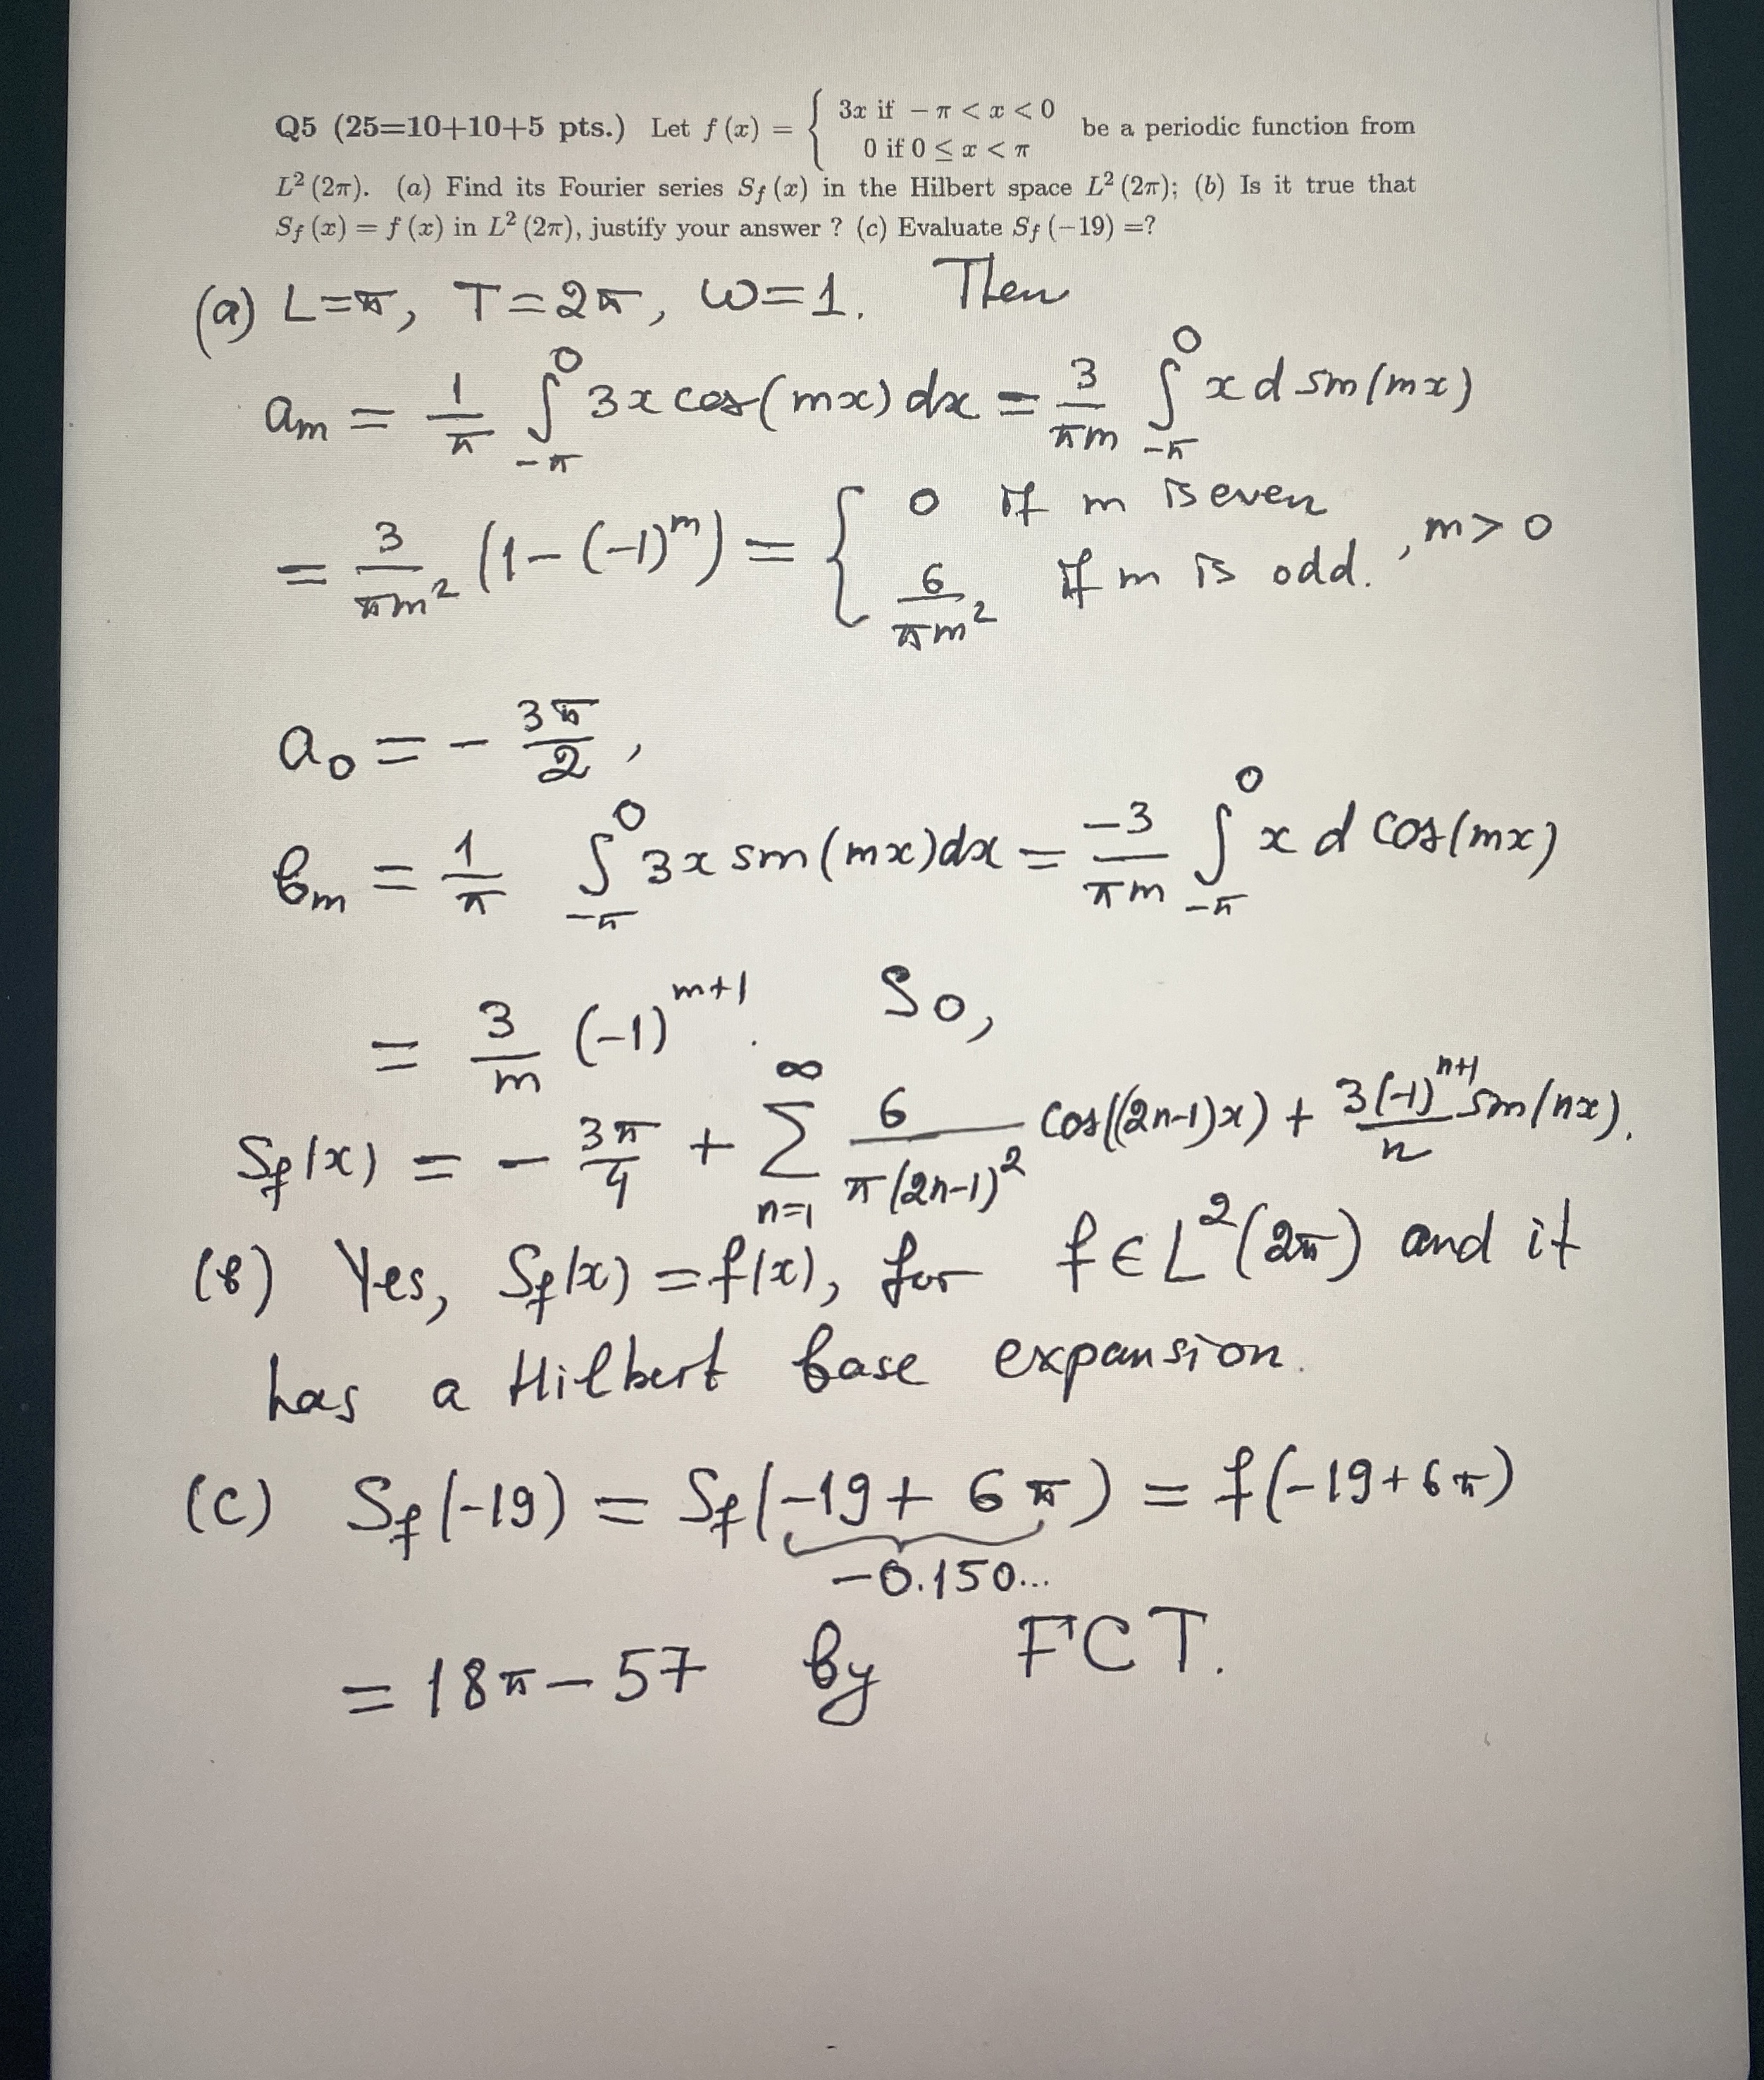 Q5 (25=10+10+5 pts.) Let f (x) = { 3x if − π < x < 0 be a periodic function from
0 if 0 ≤ x < π
L² (2π). (a) Find its Fourier series S_f (x) in the Hilbert space L² (2π); (b) Is it true that
S_f (x) = f (x) in L² (2π), justify your answer ? (c) Evaluate S_f (−19) =?
(a) L=π, T=2π, ω=1. Then
a_m = 1/π ∫_{-π}^{0} 3x cos(mx) dx = 3/(πm) ∫_{-π}^{0} x d sin(mx)
= 3/(πm²) (1-(-1)^m) = { 0 if m is even
6/(πm²) if m is odd. , m>0
a_0 = - 3π/2 ,
b_m = 1/π ∫_{-π}^{0} 3x sin(mx)dx = -3/(πm) ∫_{-π}^{0} x d cos(mx)
= 3/m (-1)^{m+1}. So,
S_f(x) = - 3π/4 + ∑_{n=1}^{∞} 6/(π(2n-1)²) cos((2n-1)x) + 3(-1)^{n+1}/n sin(nx).
(b) Yes, S_f(x) = f(x), for f ∈ L²(2π) and it
has a Hilbert base expansion.
(c) S_f(-19) = S_f(-19 + 6π) = f(-19+6π)
-0.150...
= 18π - 57 by FCT.